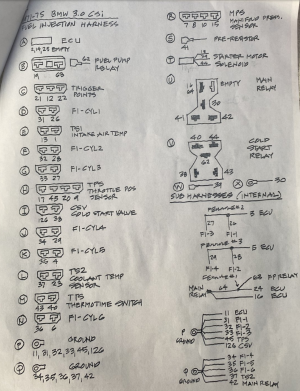 BMW 3.0 CSi
FUEL INJECTION HARNESS
A ECU
EMPTY
B 62 FUEL PUMP
RELAY
19 63
C TRIGGER
POINTS
21 12 22
D FI-CYL1
TS1
INTAKE AIR TEMP
F FI-CYL2
32 28
G FI-CYL3
33 27
H TPS
THROTTLE POS
SENSOR
I CSV
COLD START VALVE
J FI-CYL4
34 29
K FI-CYL5
L TS2
COOLANT TEMP
SENSOR
37 23
M TTS
THERMOTIME SWITCH
N FI-CYL6
36 6
P GROUND
11, 31, 32, 33, 45, 126
Q GROUND
34, 35, 36, 37, 42
R MPS
MANIFOLD PRESS.
SENSOR
7 8 10 15
S PRE-RESISTOR
41
T STARTER MOTOR
SOLENOID
U EMPTY MAIN
RELAY
39
30
41 42
V 40 44
COLD
START
RELAY
62
38 43
W 39 X 30
SUB HARNESSES (INTERNAL)
3 ECU
27 26
FI-3 FI-1
5 ECU
29 28
FI-4 FI-2
68 FP RELAY
MAIN
RELAY
24 ECU
16 ECU
11 ECU
31 FI-1
32 FI-2
33 FI-3
45 TTS
126 CSV
P
GROUND
34 FI-4
35 FI-5
36 FI-6
37 TS2
42 MAIN RELAY
Q
GROUND